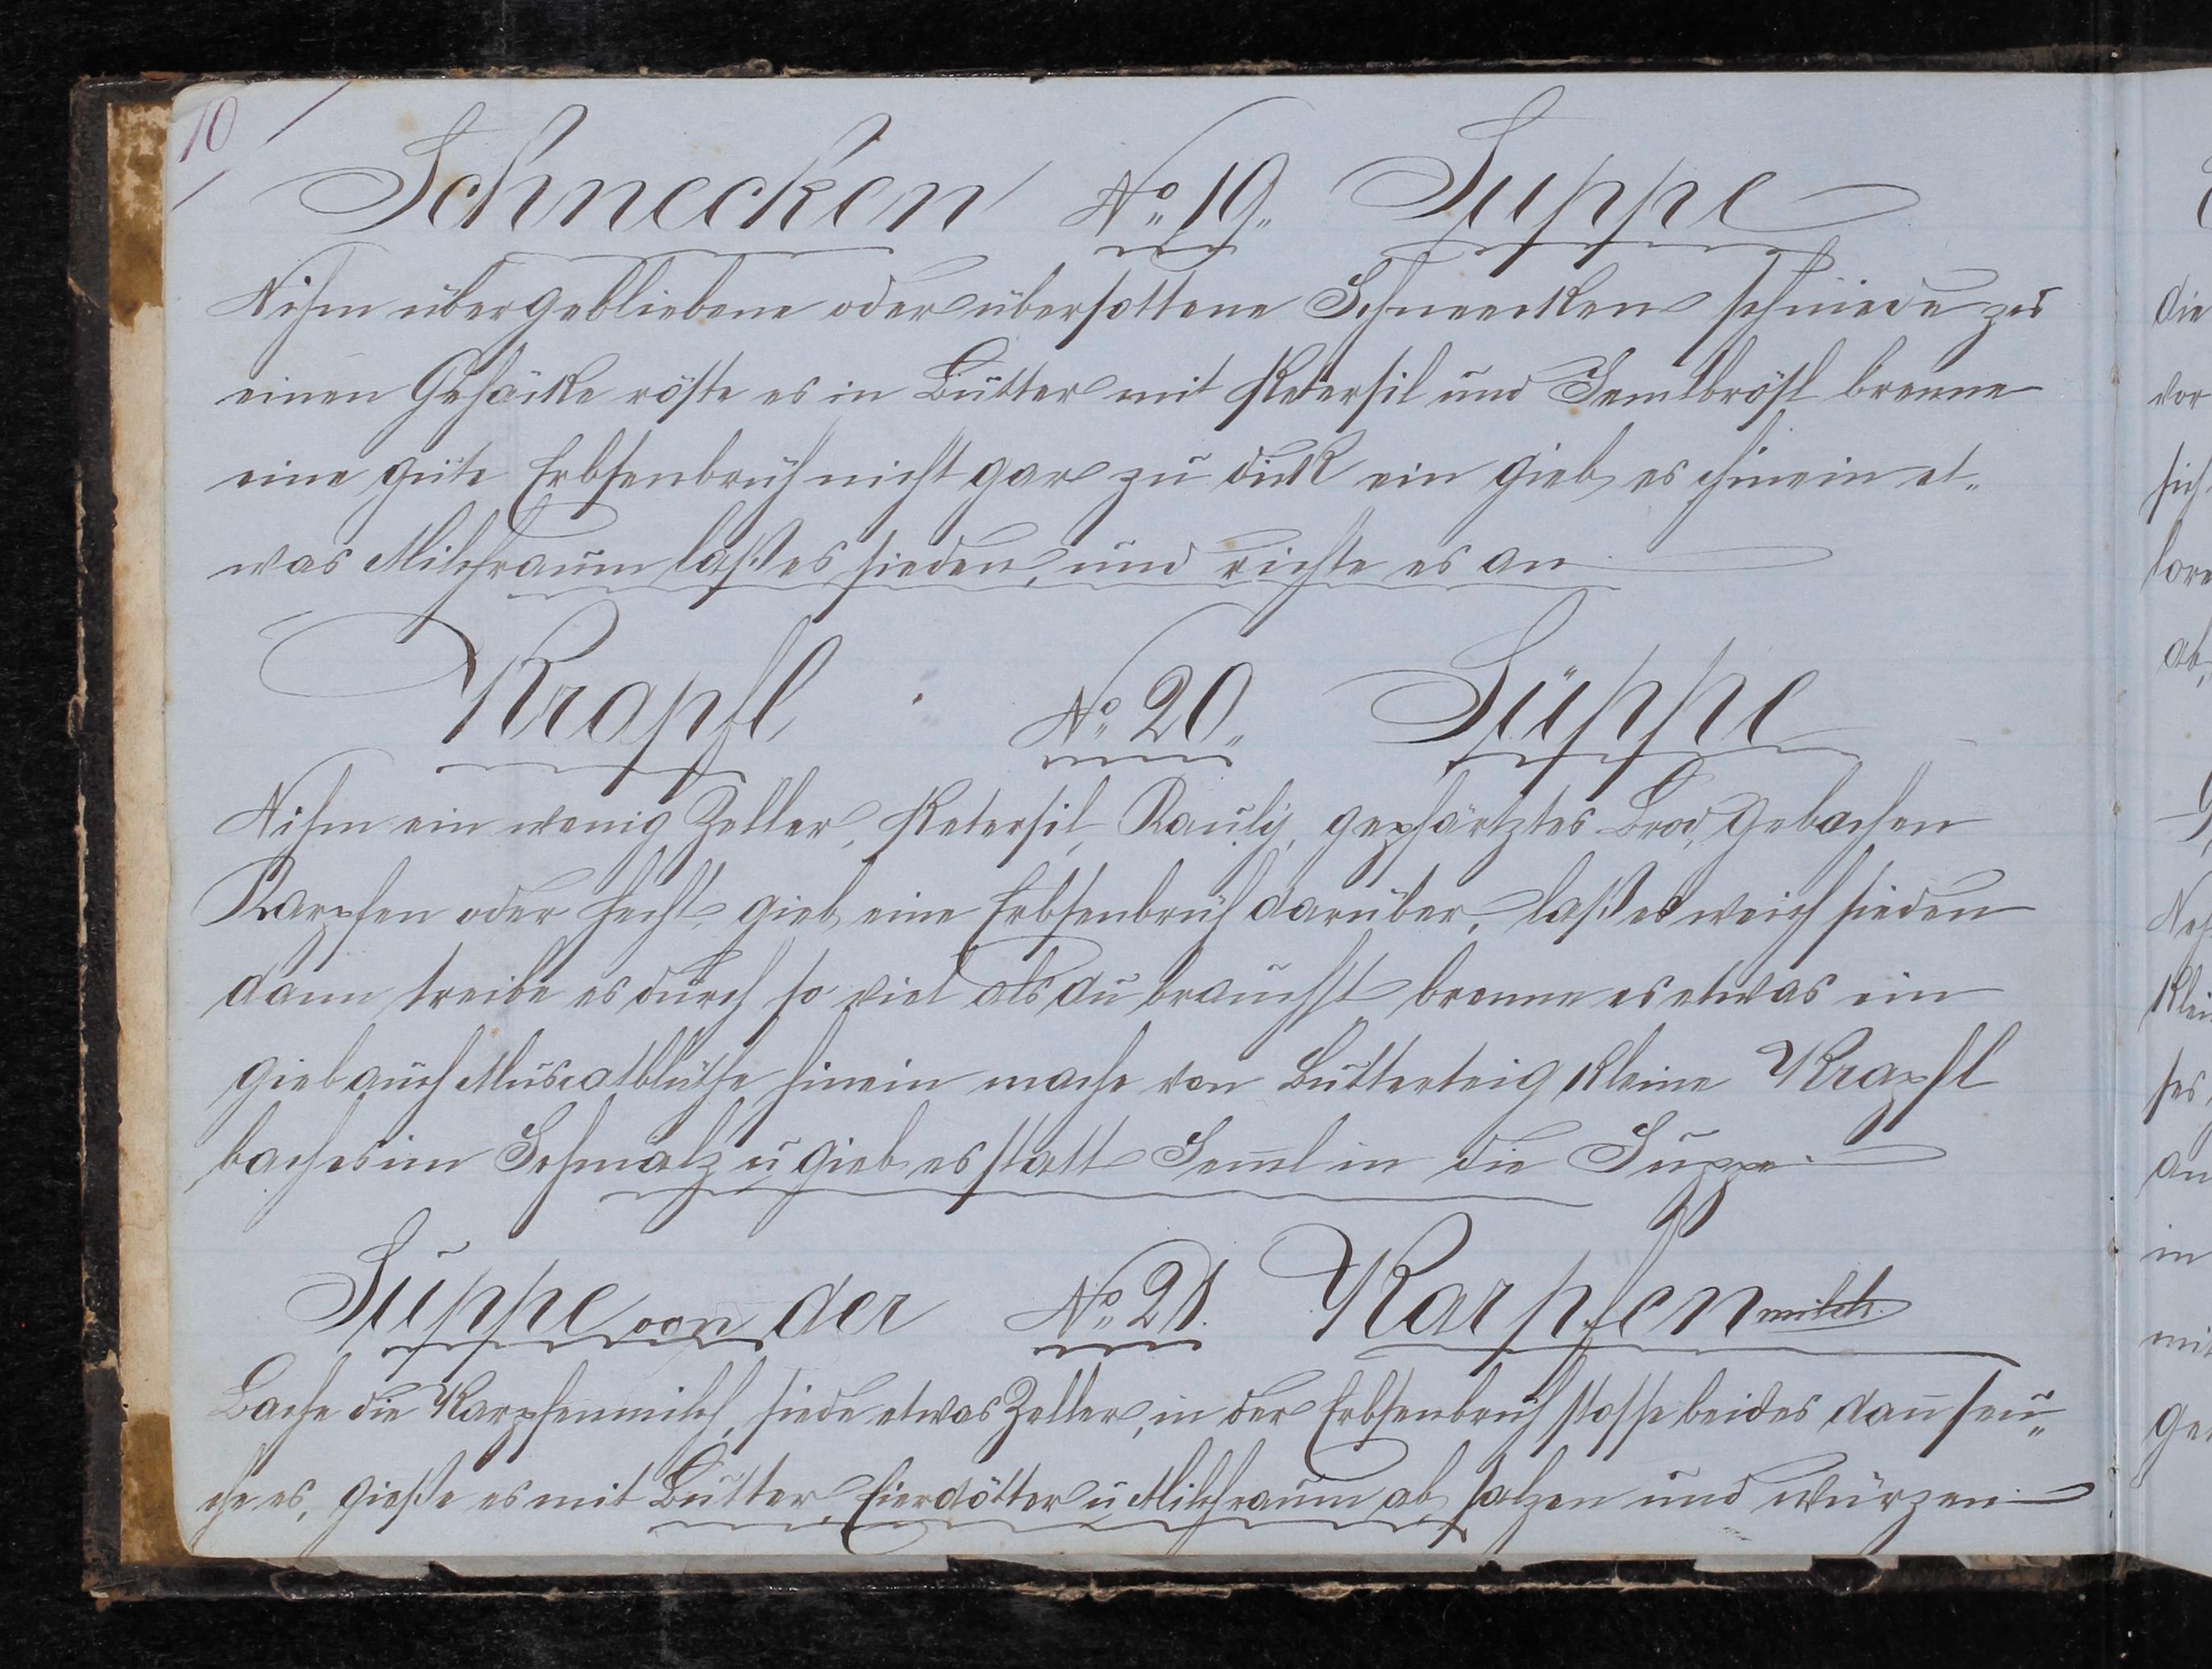 10
Schnecken No 19. Suppe
Nihm übergebliebene oder übersottene Schnecken schneide zu
einen Gehäcke röste es in Butter mit Petersil und Semlbrösl brenne
eine gute Erbsenbrüh nicht gar zu dick ein gieb es hinein et„
was Milchraum laß es sieden, und richte es an
Krapfl No 20. Suppe
Nihm ein wenig Zeller, Petersil, Pauly, gepfärtztes Brod, gebachen
Karpfen oder Hecht, gieb eine Erbsenbrüh darüber, laß es weich sieden
dann treibe es durch so viel als du brauchst brenne es etwas ein
gieb auch Muscatblüthe hinein mache von Butterteig kleine Krapfl
bach es im Schmalz u gieb es statt Seml in die Suppe.
Suppe von der No 21. Karpfenmilch.
Bache die Karpfenmilch, siede etwas Zeller, in der Erbsenbrüh stosse beides dan̄ seu„
che es, gieße es mit Butter, Eierdötter u Milchraum ab, salzen und würzen
die
vor
sich
ab,
Klei
ses,
an
in
mit